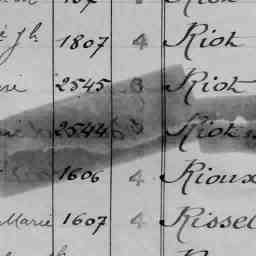 1807 4 Riot
2545 3 Riot
2544 3 Riot
1606 4 Rioux
Marie 1607 4 Rissel